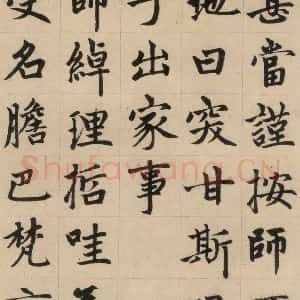 甚當謹按師
地曰突甘斯
子出家事
師綽理哲哇
受名膽巴梵
Shufawang.CN